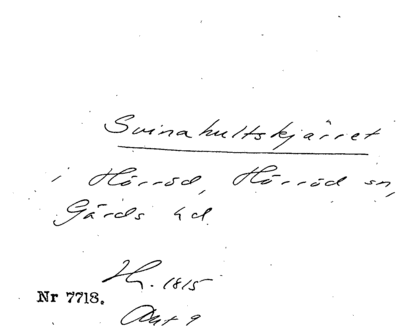 Svinahultskjärret
i Hörröd, Hörröd sn,
Gärds hd
H. 1815
Nr 7718.
Akt 9